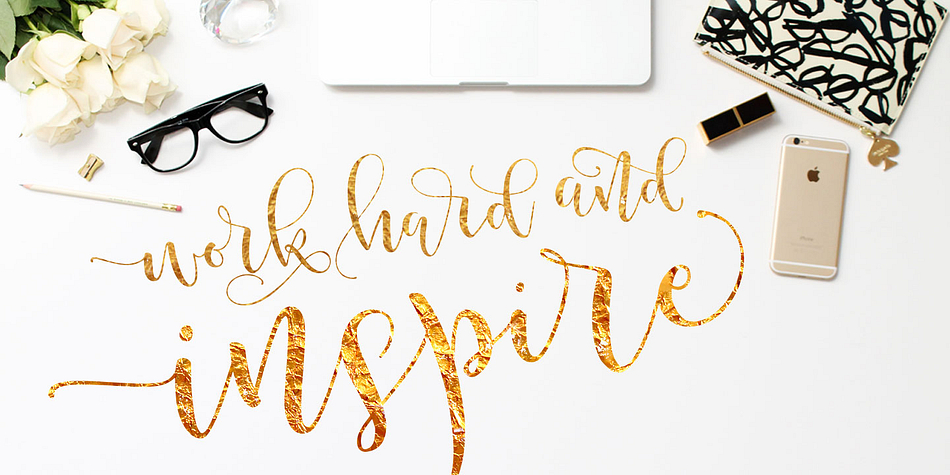 work hard and
inspire
iPhone